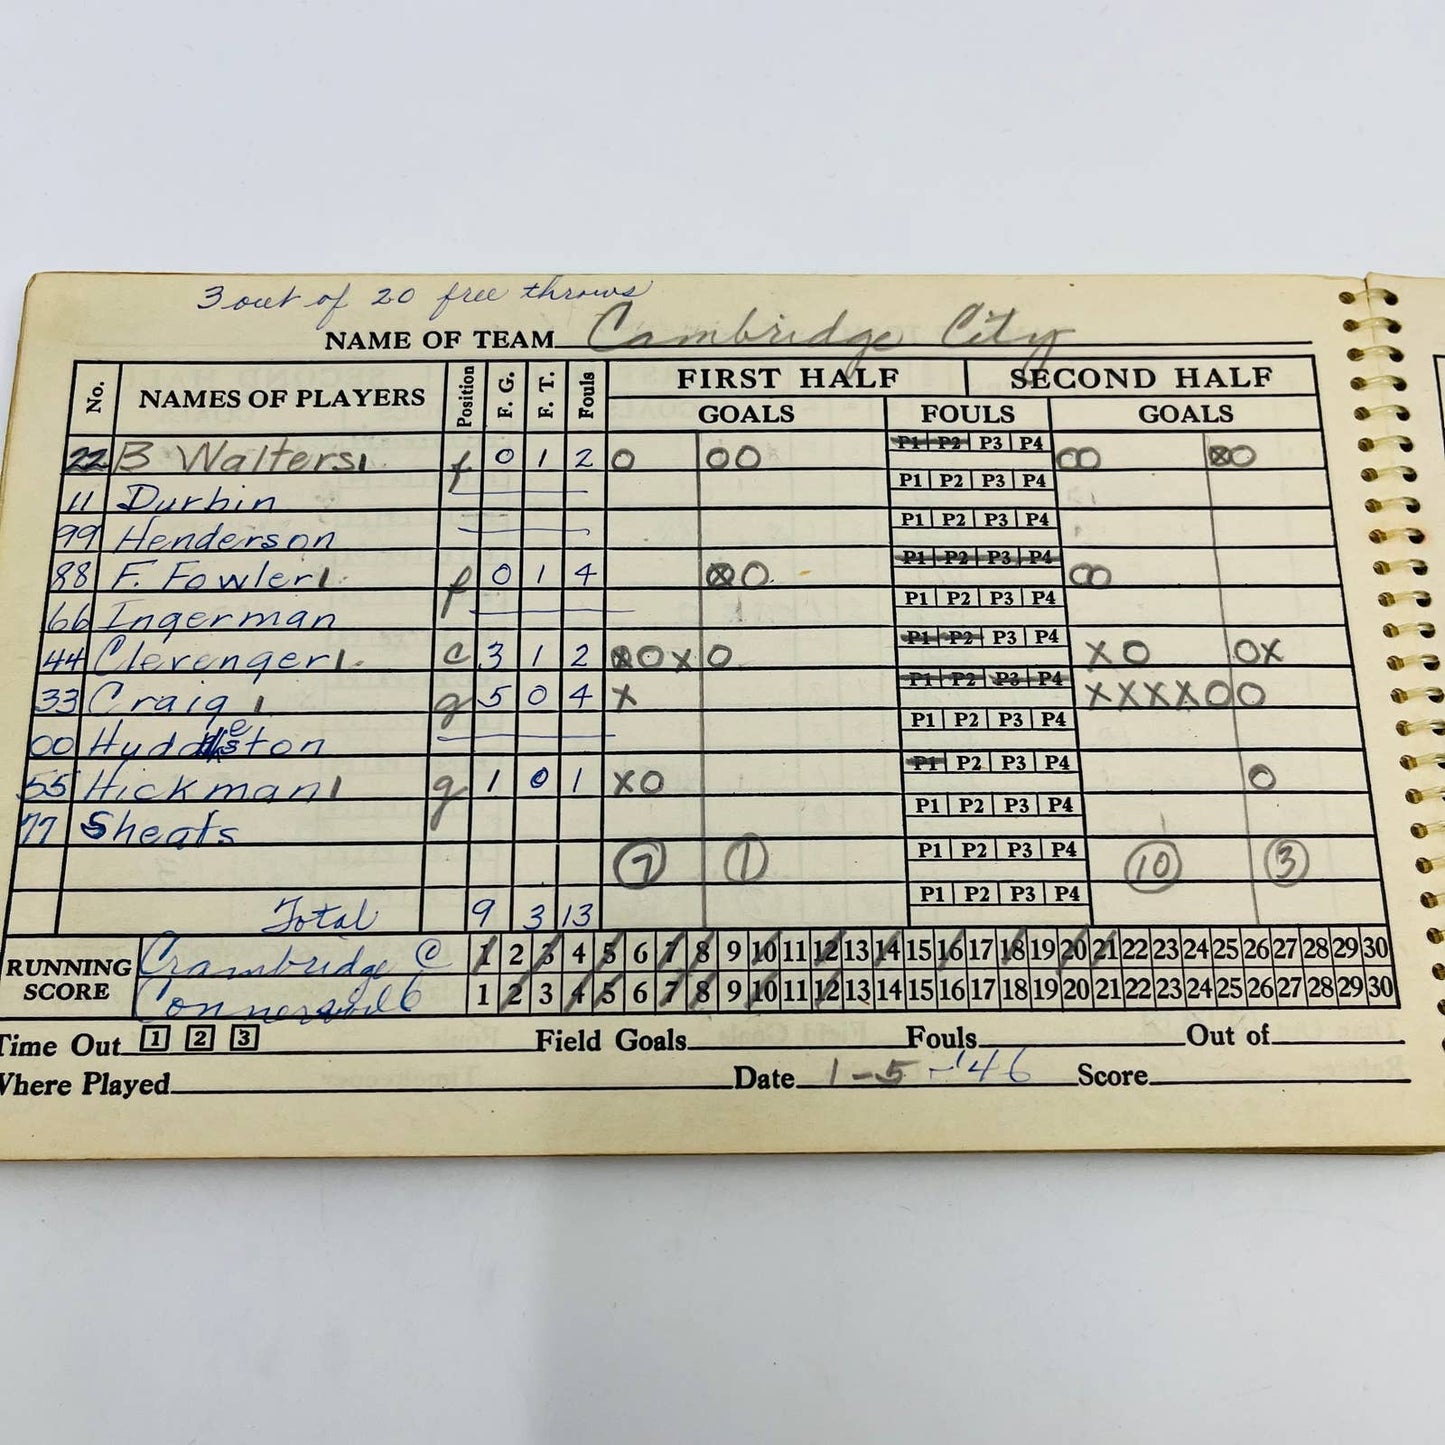 3 out of 20 free throws
NAME OF TEAM Cambridge City
No. NAMES OF PLAYERS Position F. G. F. T. Fouls FIRST HALF SECOND HALF
GOALS FOULS GOALS
22 B Walters 1 f 0 1 2 O OO P1 P2 P3 P4 OO ⊗O
11 Durbin P1 P2 P3 P4
99 Henderson P1 P2 P3 P4
88 F. Fowler 1 f 0 1 4 ⊗O P1 P2 P3 P4 OO
66 Ingerman P1 P2 P3 P4
44 Clevenger 1 c 3 1 2 ⊗OXO P1 P2 P3 P4 XO OX
33 Craig 1 g 5 0 4 X P1 P2 P3 P4 XXXXOO
00 Huddleston P1 P2 P3 P4
55 Hickman 1 g 1 0 1 XO P1 P2 P3 P4 O
77 Sheats P1 P2 P3 P4
7 1 P1 P2 P3 P4 10 3
Total 9 3 13 P1 P2 P3 P4
RUNNING SCORE
Crambridge C 1 2 3 4 5 6 7 8 9 10 11 12 13 14 15 16 17 18 19 20 21 22 23 24 25 26 27 28 29 30
1 2 3 4 5 6 7 8 9 10 11 12 13 14 15 16 17 18 19 20 21 22 23 24 25 26 27 28 29 30
Time Out 1 2 3 Field Goals Fouls Out of
Where Played Date 1-5-'46 Score